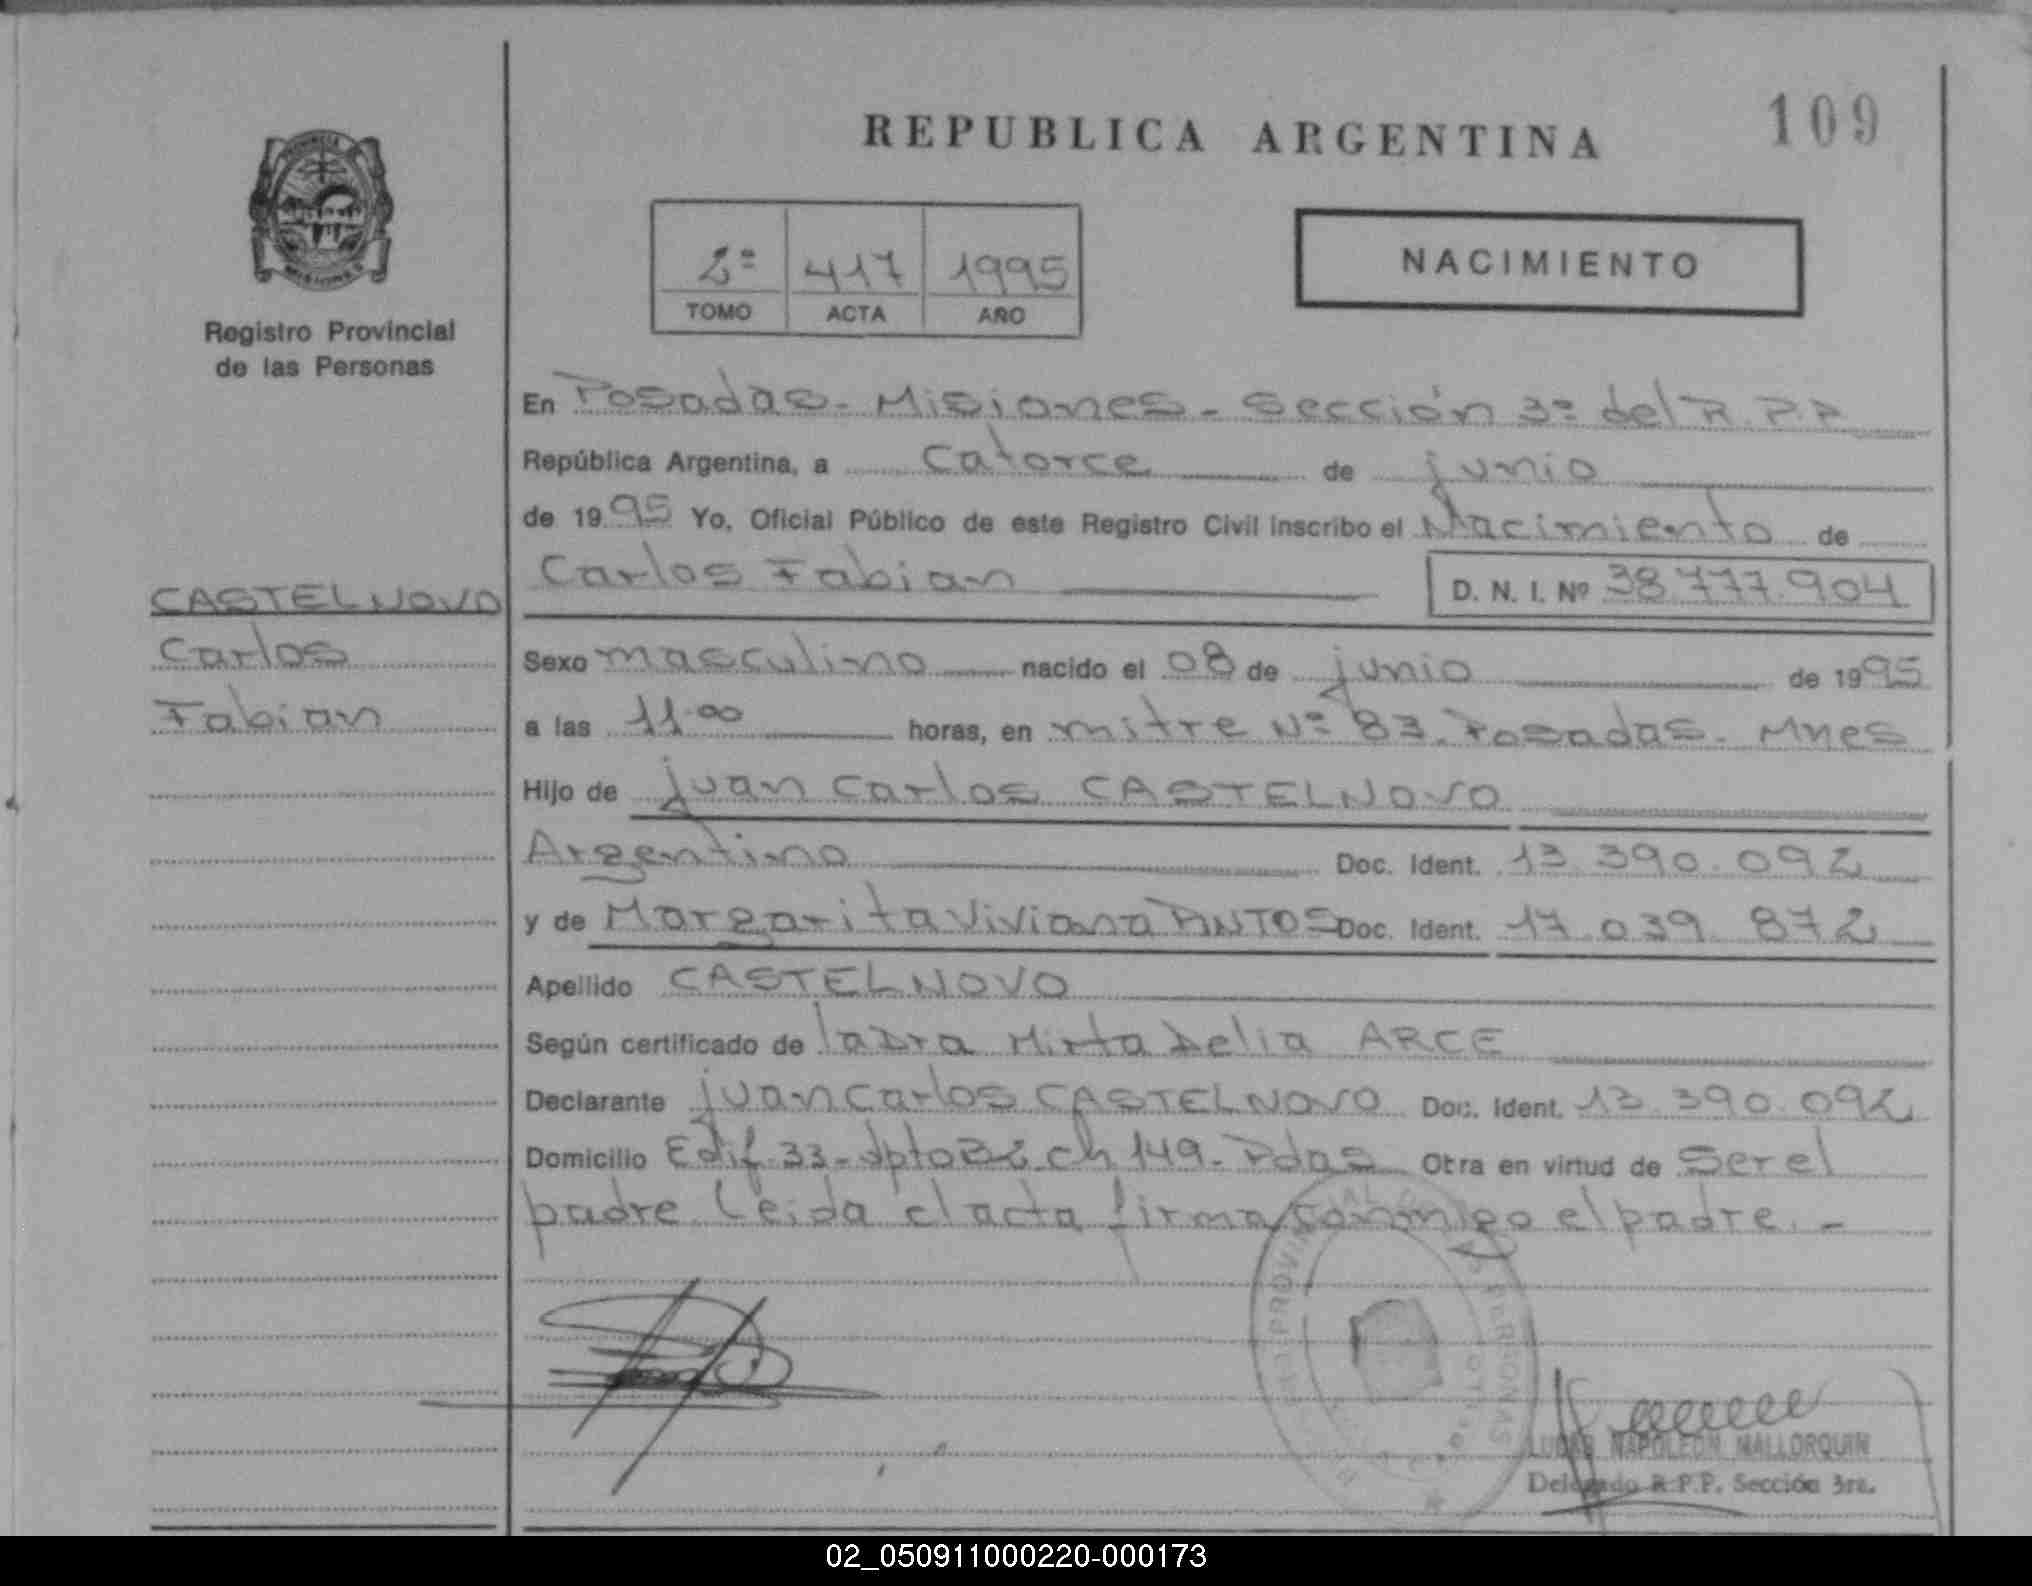 REPUBLICA ARGENTINA
109
2º 417 1995
TOMO ACTA AÑO
NACIMIENTO
MISIONES
Registro Provincial
de las Personas
En Posadas - Misiones - Sección 3º del R.P.P.
República Argentina, a Catorce de junio
de 1995 Yo, Oficial Público de este Registro Civil inscribo el Nacimiento de
Carlos Fabian
D. N. I. Nº 38.777.904
CASTELNOVO
Carlos
Fabian
Sexo masculino nacido el 08 de junio de 1995
a las 11.00 horas, en mitre Nº 83. Posadas. Mnes
Hijo de juan Carlos CASTELNOVO
Argentino Doc. Ident. 13.390.092
y de Margarita Viviana PINTOS Doc. Ident. 17.039.872
Apellido CASTELNOVO
Según certificado de la Dra Mirta Delia ARCE
Declarante juan Carlos CASTELNOVO Doc. Ident. 13.390.092
Domicilio Edif. 33 - dpto ch 149 - Pdas Otra en virtud de Ser el
padre Leida el acta firma conmigo el padre. -
LUCAS NAPOLEON MALLORQUIN
Delegado R.P.P. Sección 3ra.
02_050911000220-000173